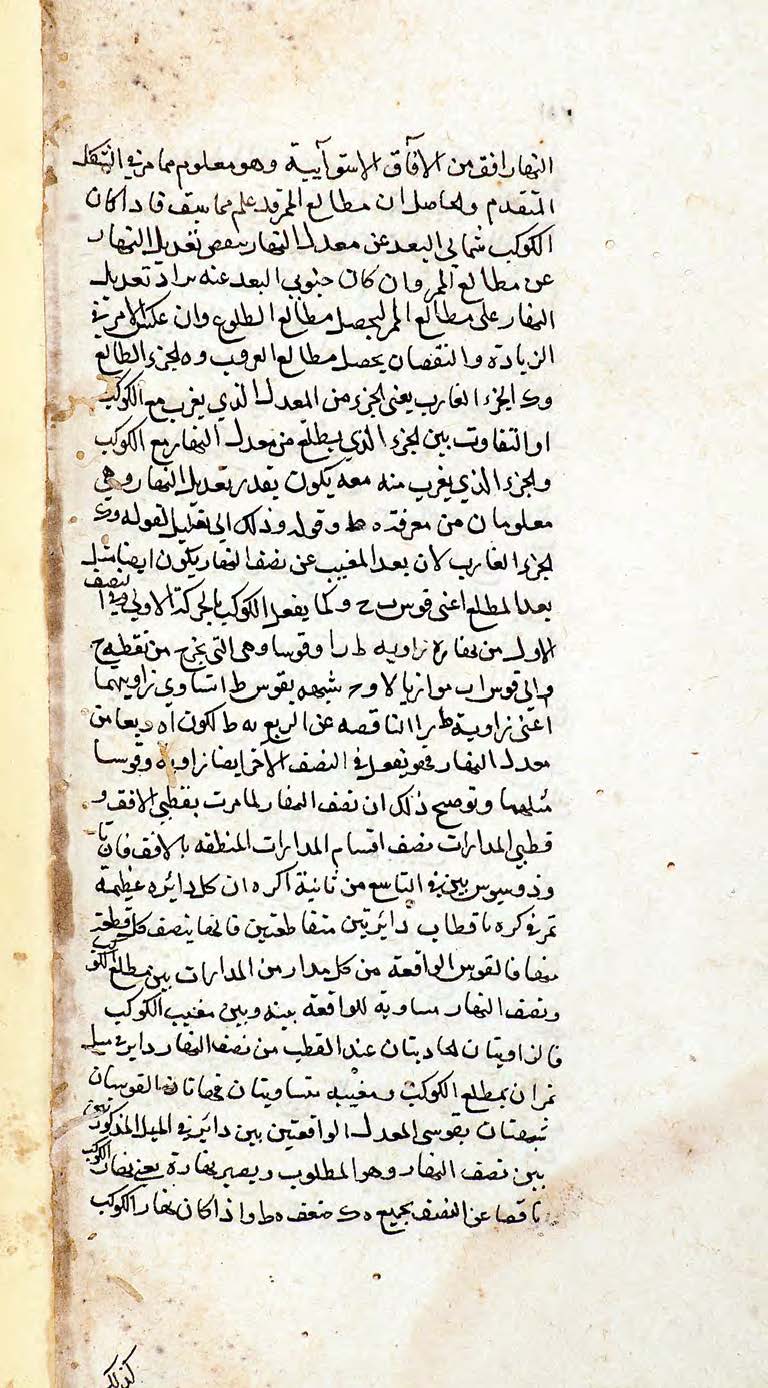 النهار افق من الافاق الاستوآيية وهو معلوم مما مر في الشكل
المتقدم والحاصل ان مطالع الممر قد علم مما سبق فاذا كان
الكوكب شمالي البعد عن معدل النهار ينقص تعديل النهار
عن مطالع الممر وان كان جنوبي البعد عنه يزاد تعديل
النهار على مطالع الممر ليحصل مطالع الطلوع وان عكس الامر في
الزيادة والنقصان يحصل مطالع الغروب وه الجزء الطالع
وك الجزء الغارب يعني الجزء من المعدل الذي يغرب مع الكوكب
او التفاوت بين الجزء الذي يطلع من معدل النهار مع الكوكب
والجزء الذي يغرب منه معه يكون بقدر تعديل النهار وهي
معلومان من معرفة ه ط وقوله وذلك الي تعليل لقوله وك
الجزء الغارب لان بعد المغيب عن نصف النهار يكون ايضا مثل
بعد المطلع اعني قوس ب ح وكما يفعل الكوكب بالحركة الاولي في النصف
الاول من نهاره زاوية وقوسا وهي التي تخرج من نقطتي ح
والي قوس اب موازيا لا وح شبيهه بقوس ط ا لتساوي زاويتهما
اعني زاوية الناقصه عن الربع به ط لكون اه ربعا من
معدل النهار فهو يفعل في النصف الآخر ايضا زاوية وقوسا
مثلهما وتوضيح ذلك ان نصف النهار لما مرت بقطبي الافق و
قطبي المدارات نصف اقسام المدارات المنطقه بالافق فان ثا
وذوسيوس بين في التاسع من ثانية اكره ان كل دائره عظيمة
تمر في كره باقطاب دائرتين متقاطعتين فانها ينصف كل قطعة
منها فالقوس الواقعة من كل مدار من المدارات بين مطالع الكوكب
ونصف النهار مساوية للواقعة بينه وبين مغيب الكوكب
فالزاويتان الحادثتان عند القطب من نصف النهار ودايرتي ميل
تمران بمطلع الكوكب ومغيبه متساويتان فهاتان القوسان
شبيهتان بقوسي المعدل الواقعتين بين دائرتي الميل المذكورتين
بين نصف النهار وهو المطلوب ويصير نهاره يعني نهار الكوكب
ناقصا عن النصف بجميع ه ك ضعف ه ط واذا كان نهار الكوكب
كذلك